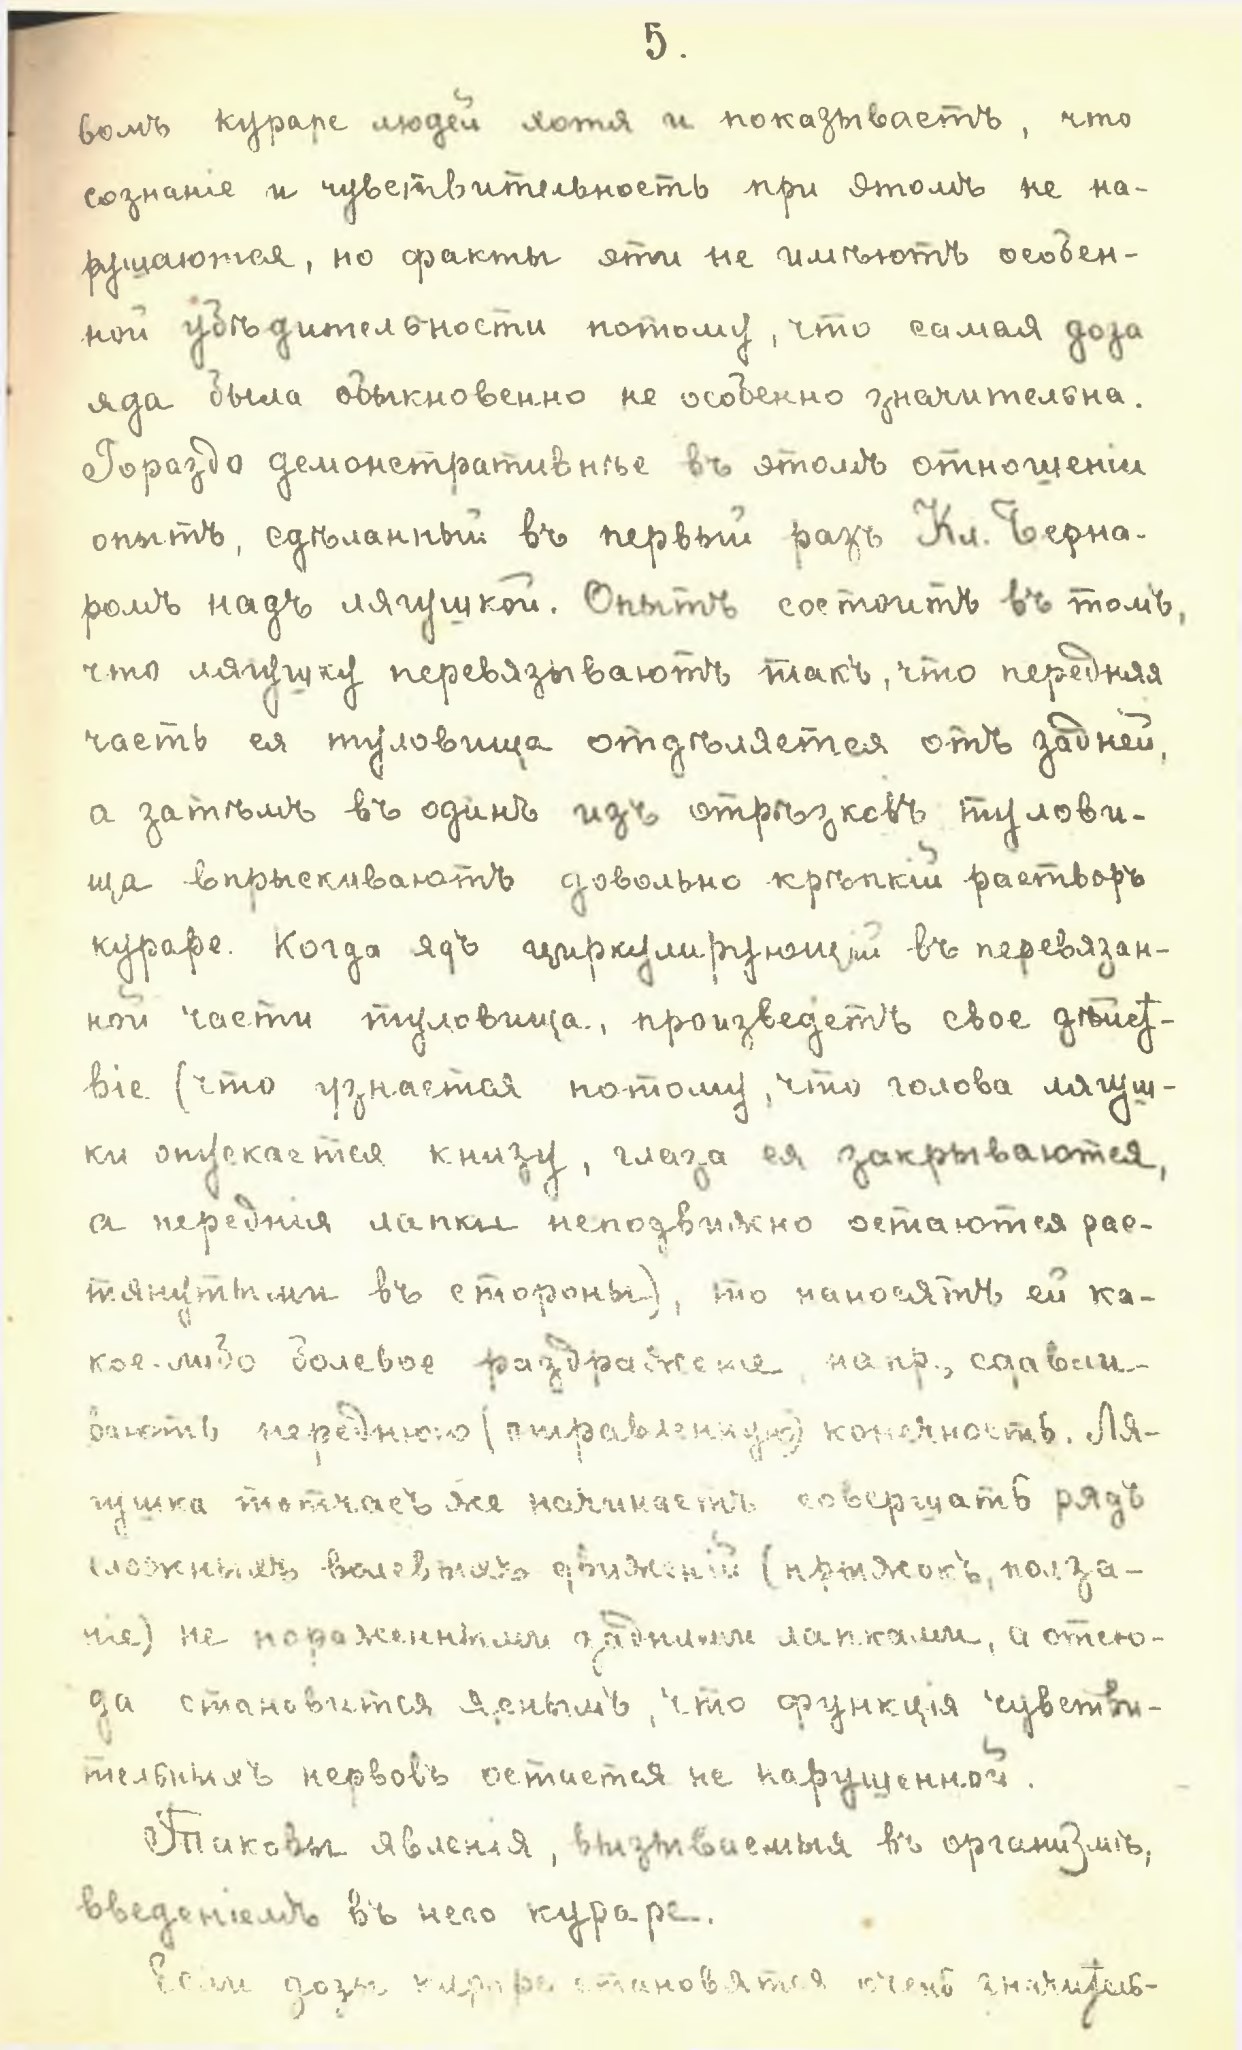 5.
вомъ кураре людей хотя и показываетъ, что
сознаніе и чувствительность при этомъ не на-
рушаются, но факты эти не имѣютъ особен-
ной убѣдительности потому, что самая доза
яда была обыкновенно не особенно значительна.
Гораздо демонстративнѣе въ этомъ отношеніи
опытъ, сдѣланный въ первый разъ Кл. Берна-
ромъ надъ лягушкой. Опытъ состоитъ въ томъ,
что лягушку перевязываютъ такъ, что передняя
часть ея туловища отдѣляется отъ задней,
а затѣмъ въ одинъ изъ отрѣзковъ тулови-
ща впрыскиваютъ довольно крѣпкій растворъ
кураре. Когда ядъ циркулирующій въ перевязан-
ной части туловища, произведетъ свое дѣйст-
віе (что узнается потому, что голова лягуш-
ки опускается книзу, глаза ея закрываются,
а переднія лапки неподвижно остаются рас-
тянутыми въ стороны), то наносятъ ей ка-
кое-либо болевое раздраженіе, напр., сдавли-
ваютъ переднюю (отравленную) конечность. Ля-
гушка тотчасъ же начинаетъ совершать рядъ
сложныхъ волевыхъ движеній (прыжокъ, полза-
ніе) не пораженными задними лапками, а отсю-
да становится яснымъ, что функція чувстви-
тельныхъ нервовъ остается не нарушенной.
Таковы явленія, вызываемыя въ организмѣ,
введеніемъ въ него кураре.
Если дозы кураре становятся очень значитель-